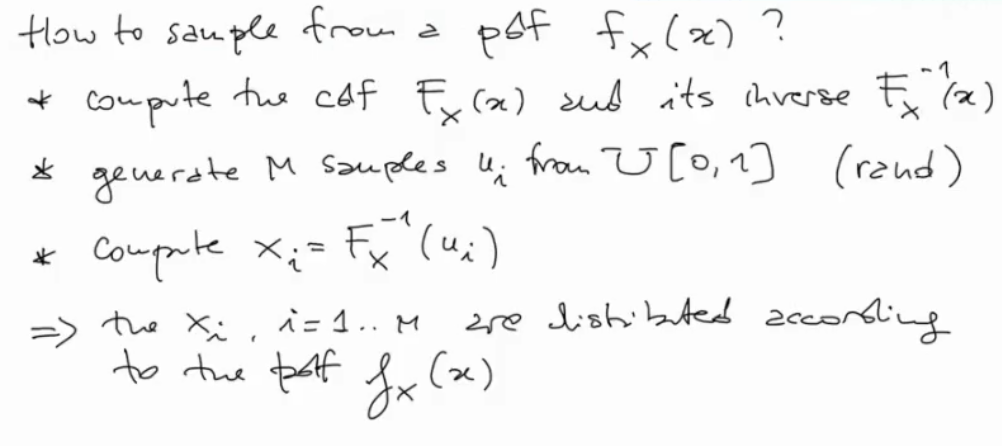 How to sample from a pdf f_X(x) ?
* compute the cdf F_X(x) and its inverse F_X^{-1}(x)
* generate M samples u_i from U[0,1] (rand)
* compute x_i = F_X^{-1}(u_i)
=> the x_i, i=1..M are distributed according
to the pdf f_X(x)